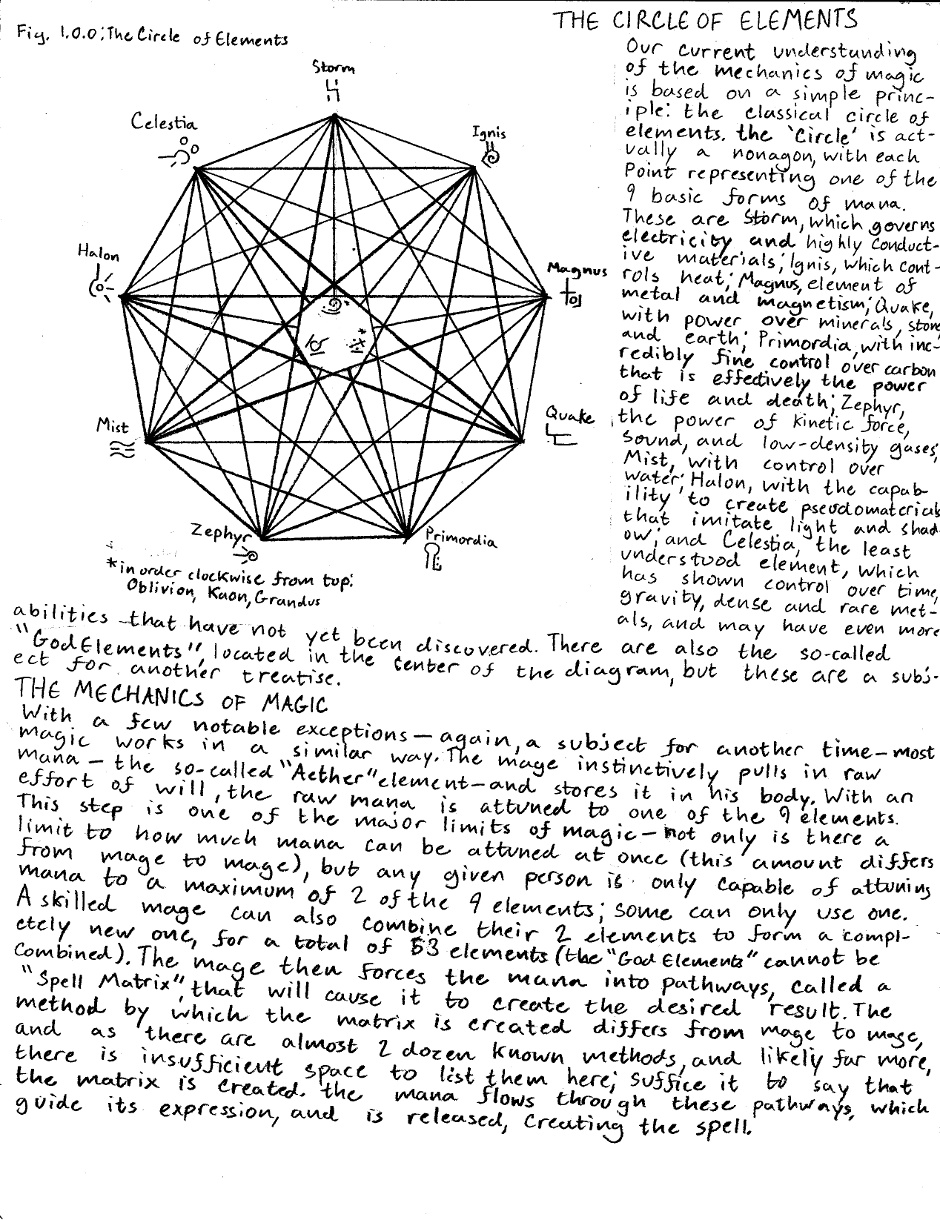 Fig. 1.0.0; The Circle of Elements
Storm
Celestia
Ignis
Halon
Magnus
Mist
Quake
Zephyr
Primordia
*in order clockwise from top:
Oblivion, Kaon, Grandus
THE CIRCLE OF ELEMENTS
Our current understanding
of the mechanics of magic
is based on a simple princ-
iple: the classical circle of
elements. the 'Circle' is act-
ually a nonagon, with each
Point representing one of the
9 basic forms of mana.
These are Storm, which governs
electricity and highly conduct-
ive materials; Ignis, which cont-
rols heat; Magnus, element of
metal and magnetism; Quake,
with power over minerals, stone
and earth; Primordia, with inc-
redibly fine control over carbon
that is effectively the power
of life and death; Zephyr,
the power of kinetic force,
sound, and low-density gases;
Mist, with control over
water; Halon, with the capab-
ility to create pseudomaterials
that imitate light and shad-
ow; and Celestia, the least
understood element, which
has shown control over time,
gravity, dense and rare met-
als, and may have even more
abilities that have not yet been discovered. There are also the so-called
"God Elements", located in the center of the diagram, but these are a subj-
ect for another treatise.
THE MECHANICS OF MAGIC
With a few notable exceptions — again, a subject for another time — most
magic works in a similar way. The mage instinctively pulls in raw
mana — the so-called "Aether" element — and stores it in his body. With an
effort of will, the raw mana is attuned to one of the 9 elements.
This step is one of the major limits of magic — not only is there a
limit to how much mana can be attuned at once (this amount differs
from mage to mage), but any given person is only capable of attuning
mana to a maximum of 2 of the 9 elements; some can only use one.
A skilled mage can also combine their 2 elements to form a compl-
etely new one, for a total of 53 elements (the "God Elements" cannot be
combined). The mage then forces the mana into pathways, called a
"Spell Matrix", that will cause it to create the desired result. The
method by which the matrix is created differs from mage to mage,
and as there are almost 2 dozen known methods, and likely far more,
there is insufficient space to list them here; suffice it to say that
the matrix is created. the mana flows through these pathways, which
guide its expression, and is released, creating the spell.